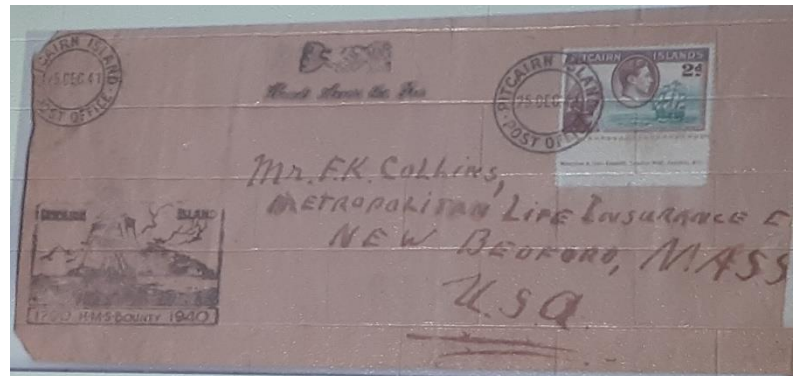 PITCAIRN ISLAND
25 DEC 41
POST OFFICE
Hands Across the Sea
PITCAIRN ISLAND
25 DEC
POST OFFICE
PITCAIRN ISLANDS
2d
Mr. F.K. Collins,
METROPOLITAN LIFE INSURANCE C
NEW BEDFORD, MASS
U.S.A.
ISLAND
1790 H·M·S·BOUNTY 1940